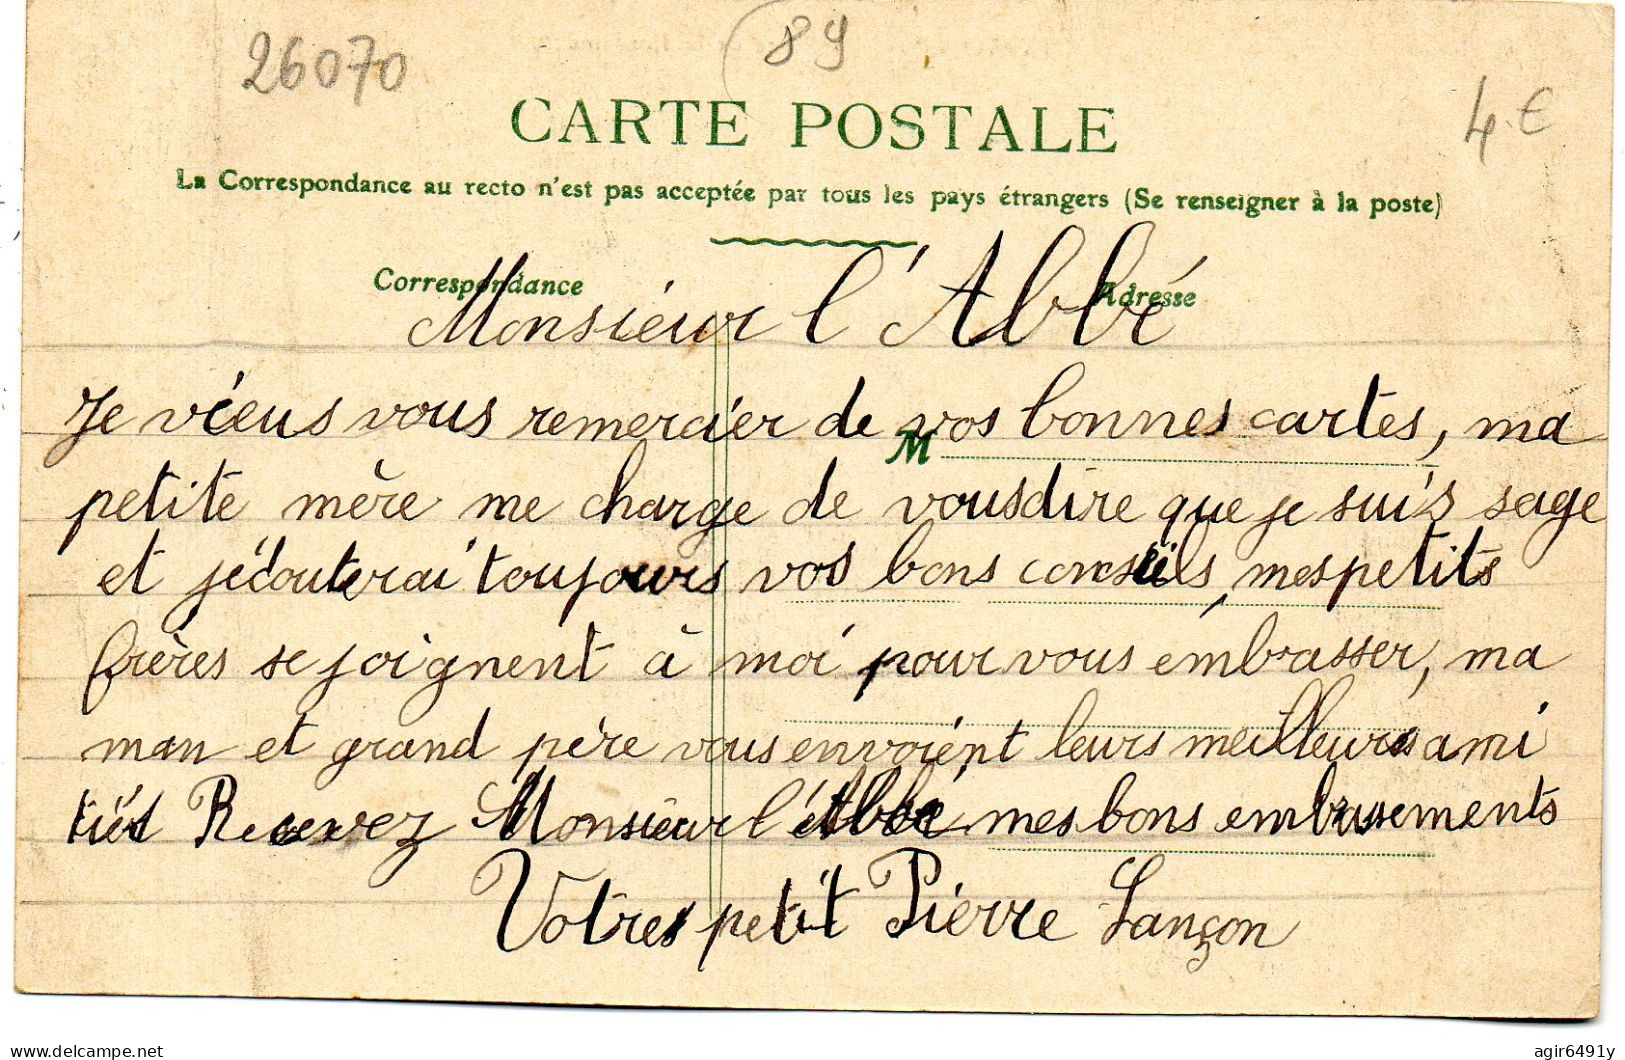 26070
89
4 €
CARTE POSTALE
La Correspondance au recto n'est pas acceptée par tous les pays étrangers (Se renseigner à la poste)
Correspondance
Adresse
Monsieur l'Abbé
Je viens vous remercier de vos bonnes cartes, ma
M
petite mère me charge de vousdire que je suis sage
et j'écouterai toujours vos bons conseils, mespetits
frères se joignent à moi pour vous embrasser, ma
man et grand père vous envoient leurs meilleures ami
tiés Recevez Monsieur l'Abbé, mes bons embrasements
Votre petit Pierre Lançon
delcampe.net
agir6491y